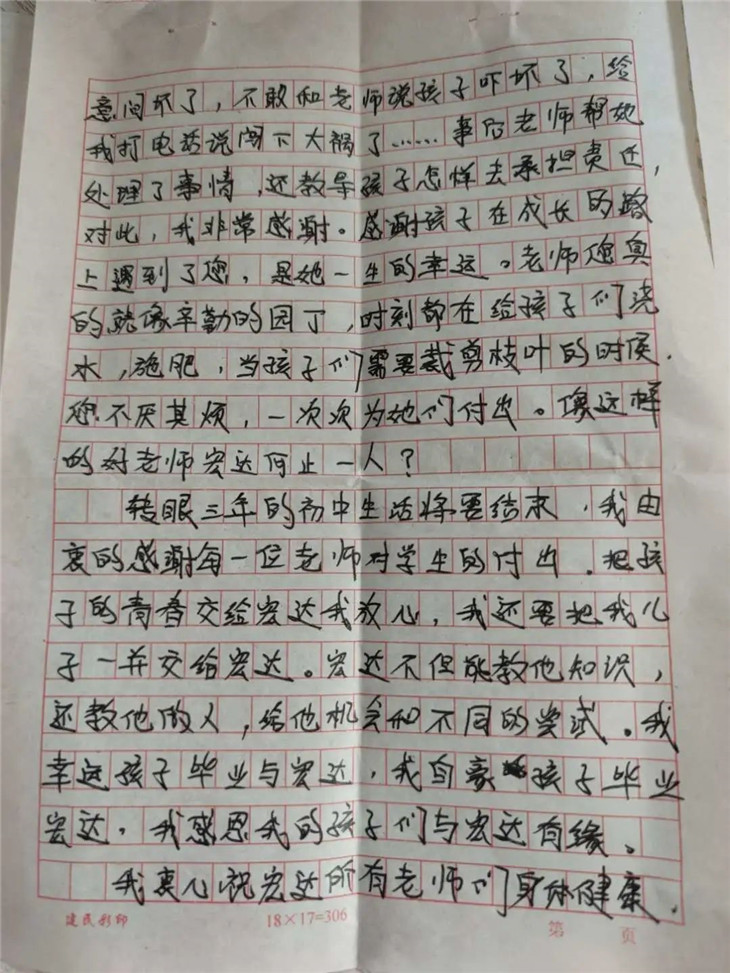 意问坏了，不敢和老师说孩子吓坏了，给
我打电话说闯下大祸了……事后老师帮她
处理了事情，还教导孩子怎样去承担责任，
对此，我非常感谢。感谢孩子在成长的路
上遇到了您，是她一生的幸运。老师您真
的就像辛勤的园丁，时刻都在给孩子们浇
水，施肥，当孩子们需要裁剪枝叶的时候，
您不厌其烦，一次次为她们付出。像这样
的好老师宏达何止一人？
转眼三年的初中生活将要结束，我由
衷的感谢每一位老师对学生的付出，把孩
子的青春交给宏达我放心，我还要把我儿
子一并交给宏达。宏达不但能教他知识，
还教他做人，给他机会和不同的尝试。我
幸运孩子毕业与宏达，我自豪孩子毕业
宏达，我感恩我的孩子们与宏达有缘。
我真心祝宏达所有老师们身体健康，
建民彩印
18×17=306
第 页